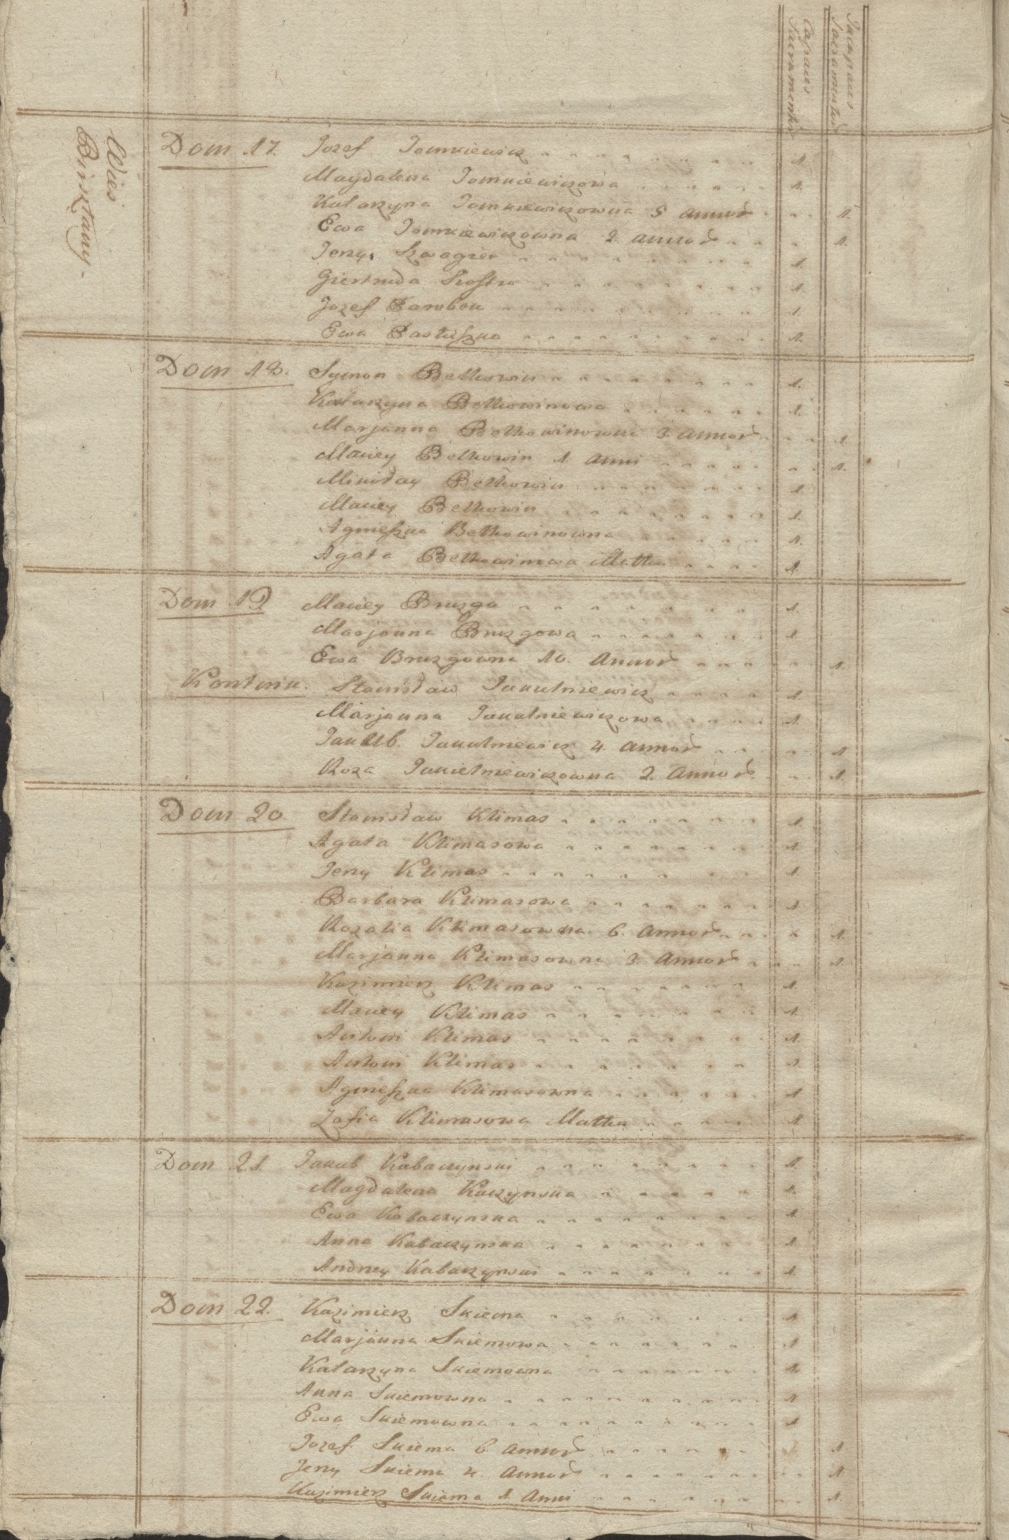 Capaus Sacramenti
Incapaus Sacramenti
Wieś
Birsztany.
Dom 17. Jozef Tomkiewicz 1
Magdalena Tomkiewiczowa 1
Katarzyna Tomkiewiczowna 5 annor 1
Ewa Tomkiewiczowna 2 annor 1
Jerzy Szwagier 1
Giertruda Siostra 1
Jozef Parobek 1
Ewa Pastuszka 1
Dom 18. Symon Betkowin 1
Katarzyna Betkowinowa 1
Marjanna Betkowinowna 3 annor 1
Maciey Betkowin 1 anni 1
Mikołay Betkowin 1
Maciey Betkowin 1
Agnieszka Betkowinowna 1
Agata Betkowinowa Matka 1
Dom 19 Maciey Bruzga 1
Marjanna Bruzgowa 1
Ewa Bruzgowna 10. annor 1
Kątnik. Stanisław Jakutniewicz 1
Marjanna Jakutniewiczowa 1
Jakub Jakutniewicz 4 annor 1
Roza Jakutniewiczowna 2 annor 1
Dom 20 Stanisław Klimas 1
Agata Klimasowa 1
Jerzy Klimas 1
Barbara Klimasowa 1
Rozalia Klimasowna 6. annor 1
Marjanna Klimasowna 3 annor 1
Kazimierz Klimas 1
Maciey Klimas 1
Antoni Klimas 1
Antoni Klimas 1
Agnieszka Klimasowna 1
Zofia Klimasowa Matka 1
Dom 21 Jakub Kabaczynski 1
Magdalena Kaczynska 1
Ewa Kabaczynska 1
Anna Kabaczynska 1
Andrzey Kabaczynski 1
Dom 22. Kazimierz Skiema 1
Marjanna Skiemowa 1
Katarzyna Skiemowna 1
Anna Skiemowna 1
Ewa Skiemowna 1
Jozef Skiema 6 annor 1
Jerzy Skiema 4 annor 1
Kazimierz Skiema 1 Anni 1